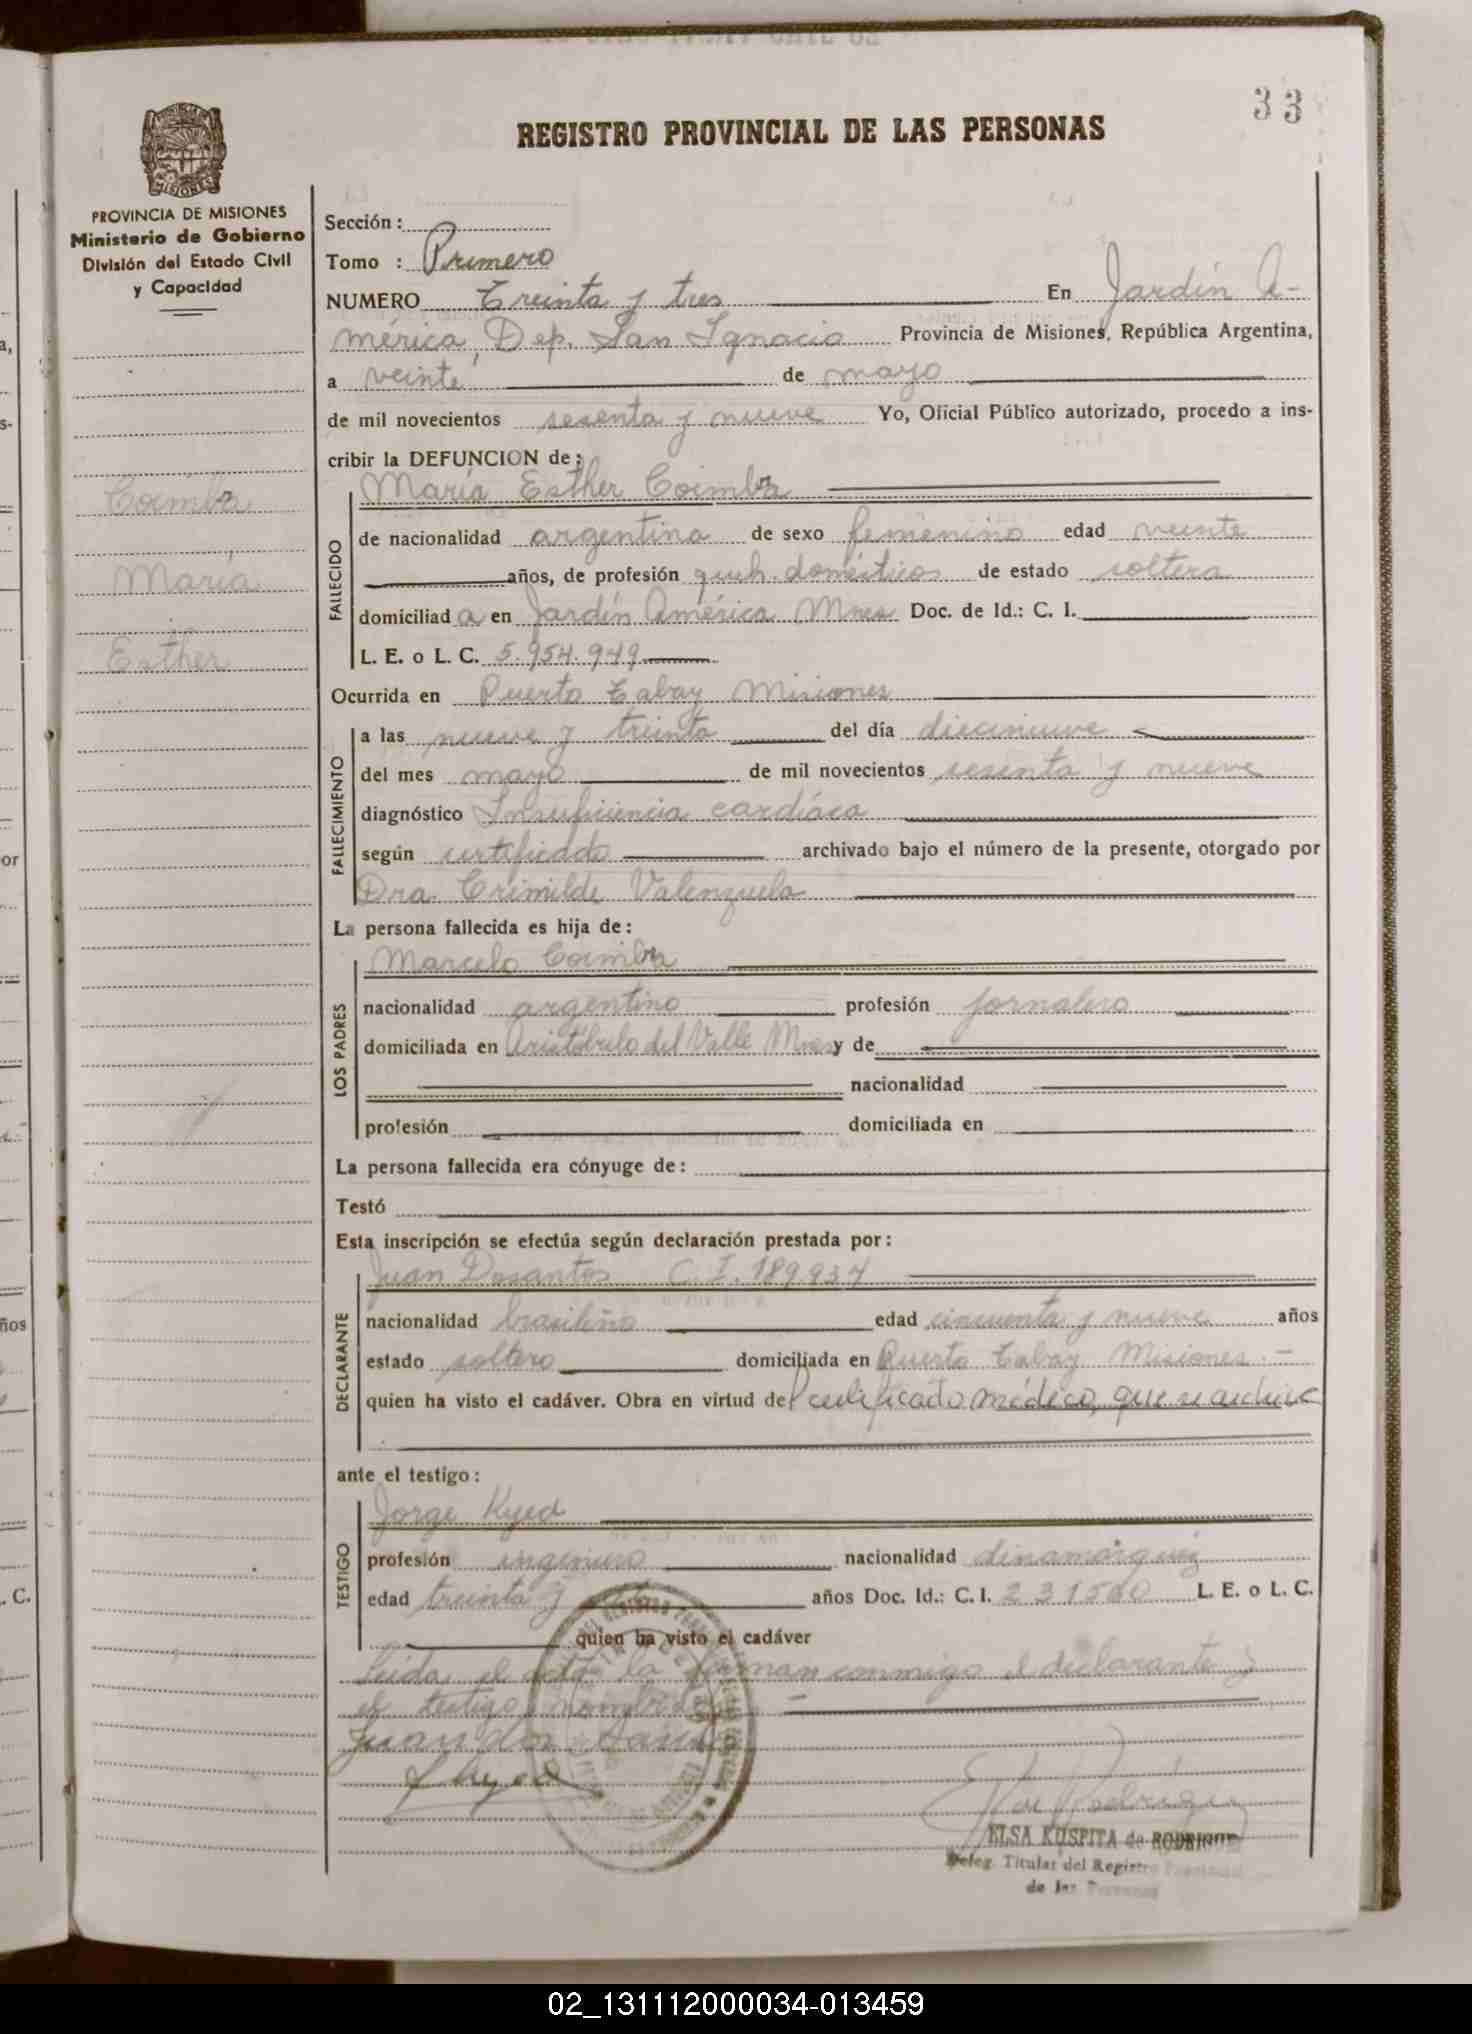 33
REGISTRO PROVINCIAL DE LAS PERSONAS
PROVINCIA DE MISIONES
Ministerio de Gobierno
División del Estado Civil
y Capacidad
Coimbra
María
Esther
Sección:
Tomo : Primero
NUMERO Treinta y tres En Jardín A-
mérica, Dep. San Ignacio Provincia de Misiones, República Argentina,
a veinte de mayo
de mil novecientos sesenta y nueve Yo, Oficial Público autorizado, procedo a ins-
cribir la DEFUNCION de:
María Esther Coimbra
FALLECIDO
de nacionalidad argentina de sexo femenino edad veinte
años, de profesión queh. domésticos de estado soltera
domiciliad a en Jardín América Mnes Doc. de Id.: C. I.
L. E. o L. C. 5.954.949
Ocurrida en Puerto Tabay Misiones
FALLECIMIENTO
a las nueve y treinta del día diecinueve
del mes mayo de mil novecientos sesenta y nueve
diagnóstico Insuficiencia cardíaca
según certificado archivado bajo el número de la presente, otorgado por
Dra. Crimilde Valenzuela
La persona fallecida es hija de:
LOS PADRES
Marcelo Coimbra
nacionalidad argentino profesión jornalero
domiciliada en Aristóbulo del Valle Mnes y de
nacionalidad
profesión domiciliada en
La persona fallecida era cónyuge de:
Testó
Esta inscripción se efectúa según declaración prestada por:
DECLARANTE
Juan Dosantos C. I. 189.937
nacionalidad brasileño edad cincuenta y nueve años
estado soltero domiciliada en Puerto Tabay Misiones.-
quien ha visto el cadáver. Obra en virtud del certificado médico, que se archiva
ante el testigo:
TESTIGO
Jorge Kyed
profesión ingeniero nacionalidad dinamarquéz
edad treinta y años Doc. Id.: C. I. 231560 L. E. o L. C.
quien ha visto el cadáver
Leida el acta la firman conmigo el declarante y
el testigo nombrado
Juan dos santos
J Kyed
ELSA KUSPITA de RODRIGUEZ
Deleg. Titular del Registro Provincial
de las Personas
02_131112000034-013459